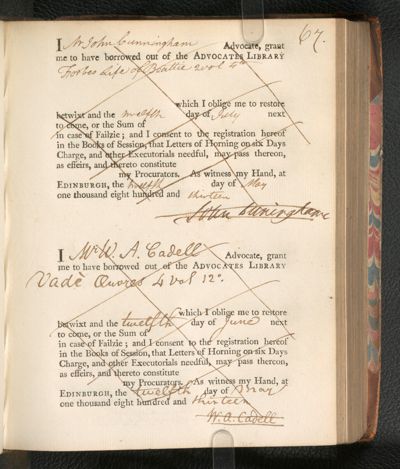 67.
I Mr John Cunningham Advocate, grant
me to have borrowed out of the ADVOCATES LIBRARY
Forbes Life of Beattie 2 vol 4to
which I oblige me to restore
betwixt and the twelfth day of July next
to come, or the Sum of
in case of Failzie; and I consent to the registration hereof
in the Books of Session, that Letters of Horning on six Days
Charge, and other Executorials needful, may pass thereon,
as effeirs, and thereto constitute
my Procurators. As witness my Hand, at
EDINBURGH, the twelfth day of May
one thousand eight hundred and thirteen
John Cuninghame
I Mr W. A. Cadell Advocate, grant
me to have borrowed out of the ADVOCATES LIBRARY
Vadè Œuvres 4 vol 12o.
which I oblige me to restore
betwixt and the twelfth day of June next
to come, or the Sum of
in case of Failzie; and I consent to the registration hereof
in the Books of Session, that Letters of Horning on six Days
Charge, and other Executorials needful, may pass thereon,
as effeirs, and thereto constitute
my Procurators. As witness my Hand, at
EDINBURGH, the twelfth day of May
one thousand eight hundred and thirteen
W. A. Cadell